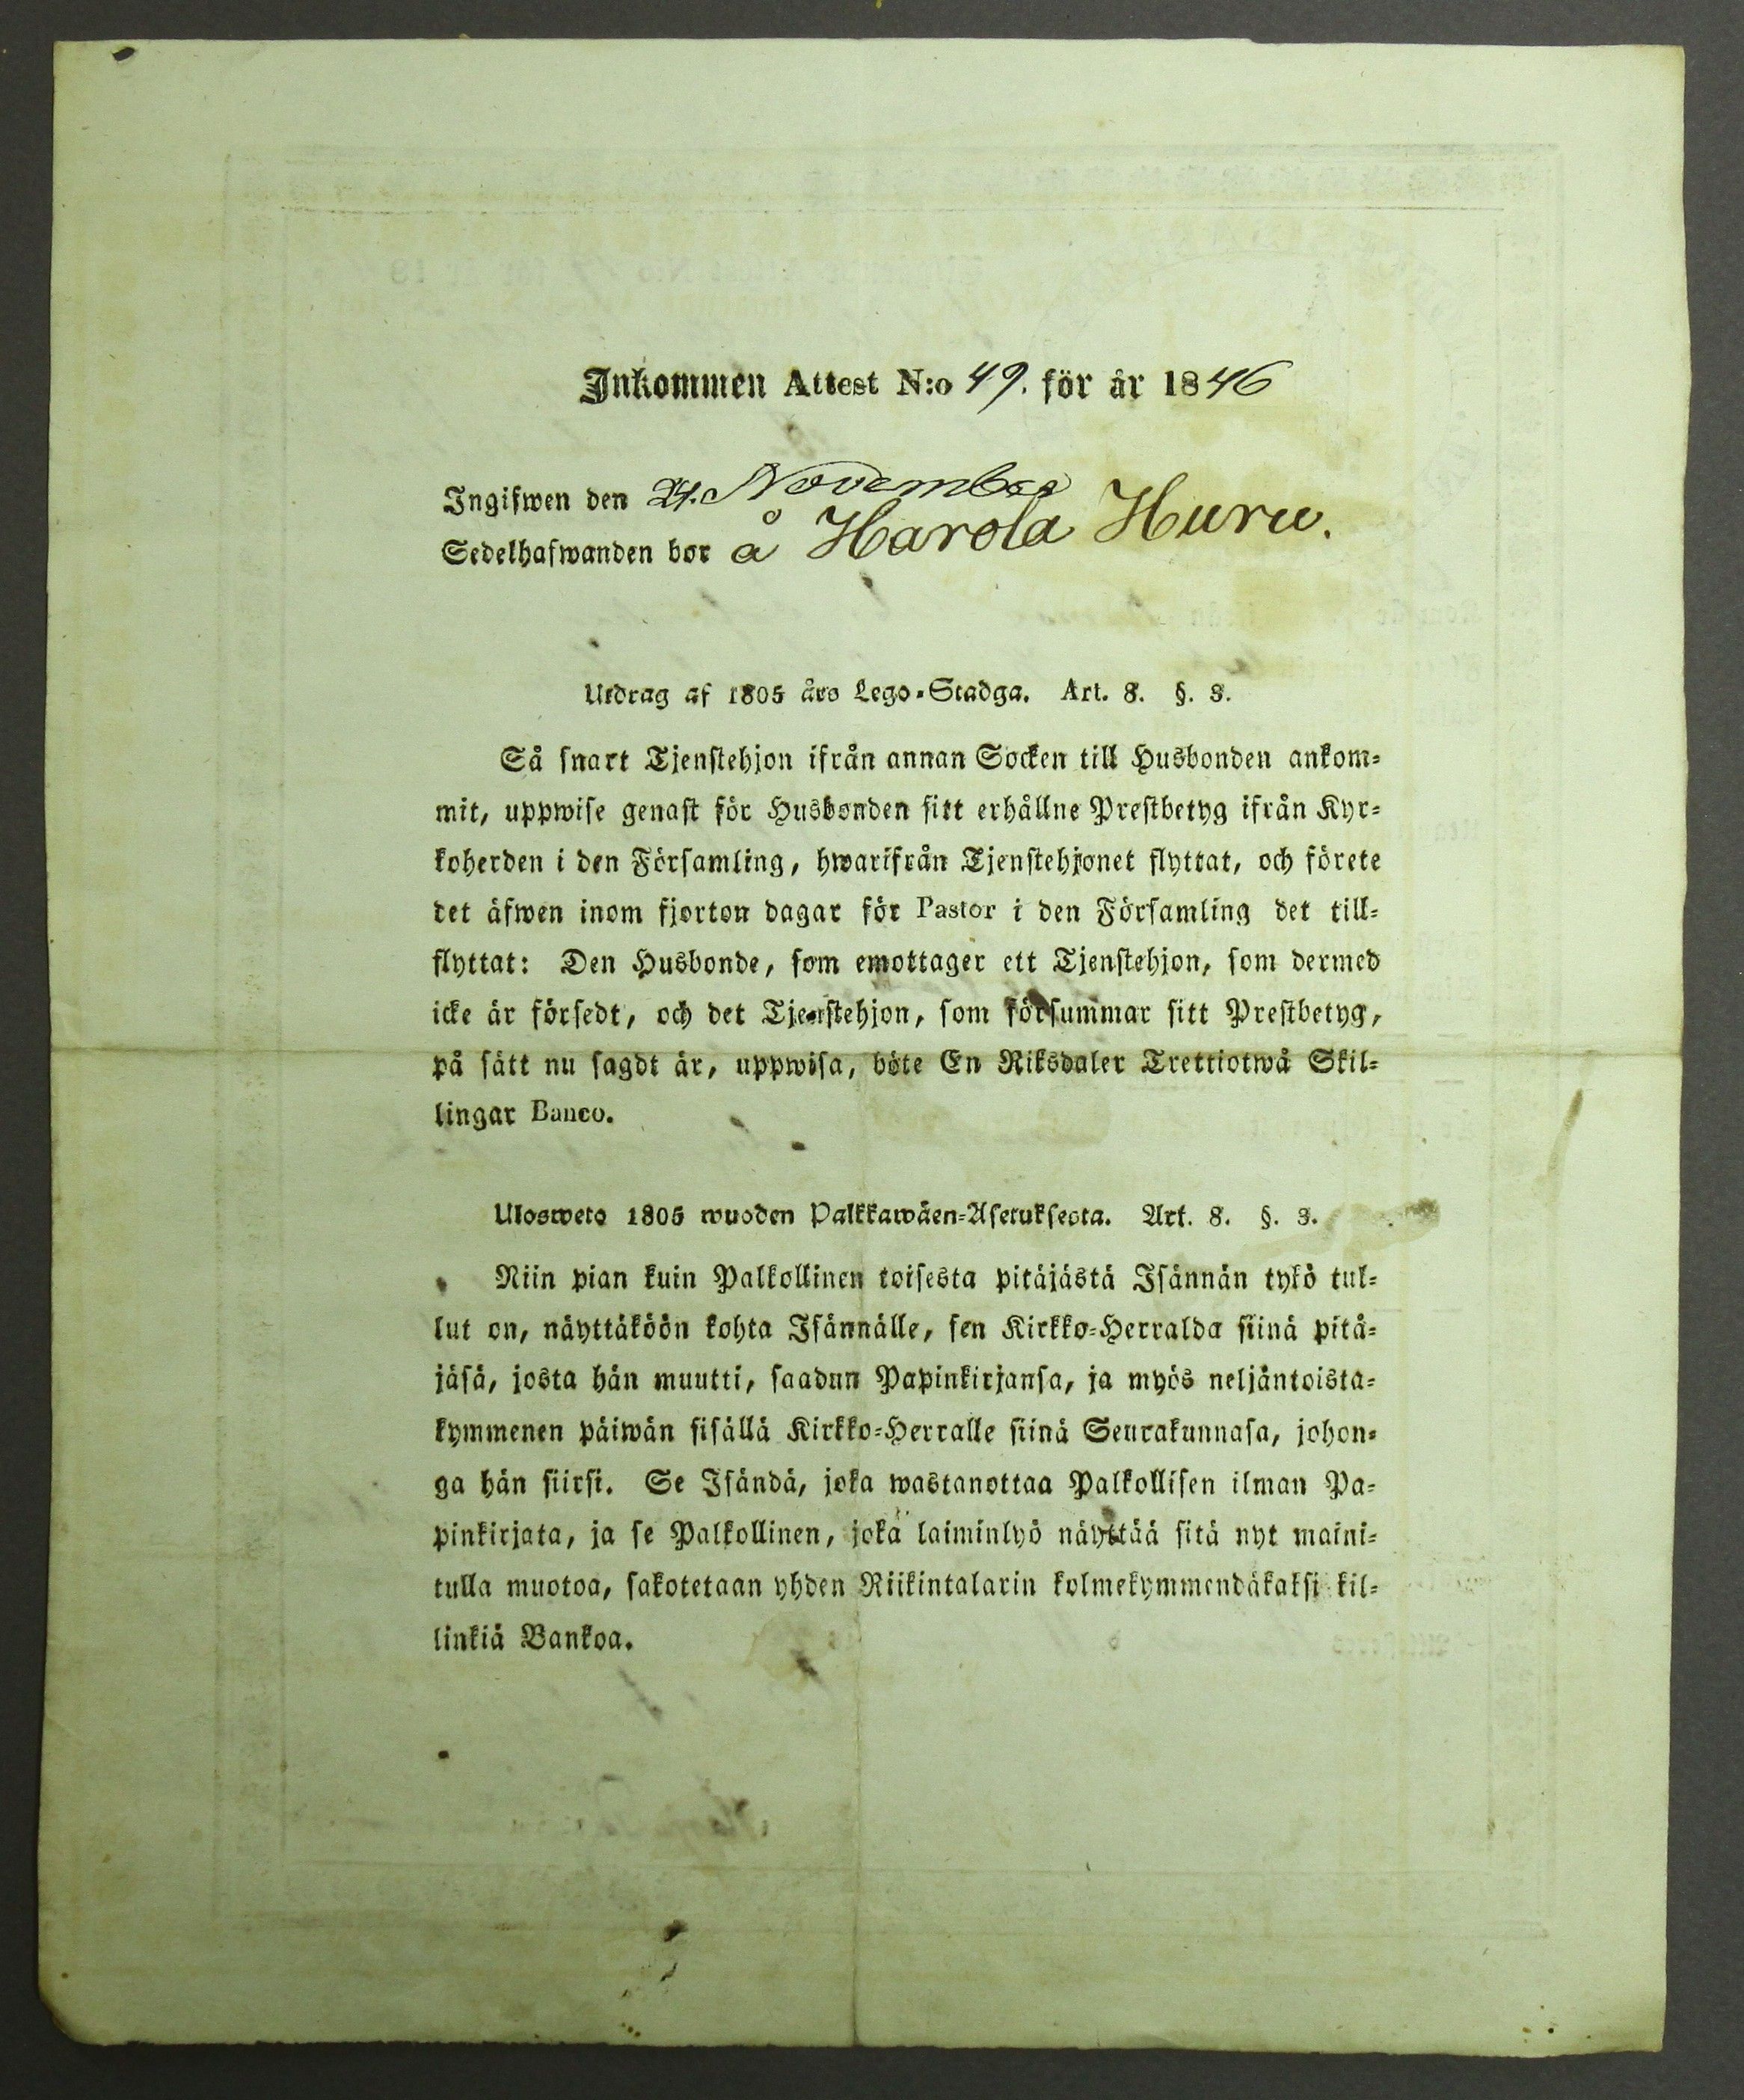 Inkommen Attest N:o 49. för år 1846
Ingifwen den 24. November
Sedelhafwanden bor å Harola Huru.
Utdrag af 1805 års Lego-Stadga. Art. 8. §. 3.
Så snart Tjenstehjon ifrån annan Socken till Husbonden ankom-
mit, uppwise genast för Husbonden sitt erhållne Prestbetyg ifrån Kyr-
koherden i den Församling, hwarifrån Tjenstehjonet flyttat, och förete
det äfwen inom fjorton dagar för Pastor i den Församling det till-
flyttat: Den Husbonde, som emottager ett Tjenstehjon, som dermed
icke är försedt, och det Tjenstehjon, som försummar sitt Prestbetyg,
på sätt nu sagdt är, uppwisa, böte En Riksdaler Trettiotwå Skil-
lingar Banco.
Ulosweto 1805 wuoden Palkkawäen-Asetuksesta. Art. 8. §. 3.
Niin pian kuin Palkollinen toisesta pitäjästä Isännän tykö tul-
lut on, näyttäköön kohta Isännälle, sen Kirkko-Herralda siinä pitä-
jäsä, josta hän muutti, saadun Papinkirjansa, ja myös neljäntoista-
kymmenen päiwän sisällä Kirkko-Herralle siinä Seurakunnasa, johon-
ga hän siirsi. Se Isändä, joka wastanottaa Palkollisen ilman Pa-
pinkirjata, ja se Palkollinen, joka laiminlyö näyttää sitä nyt maini-
tulla muotoa, sakotetaan yhden Riikintalarin kolmekymmendäkaksi kil-
linkiä Bankoa.